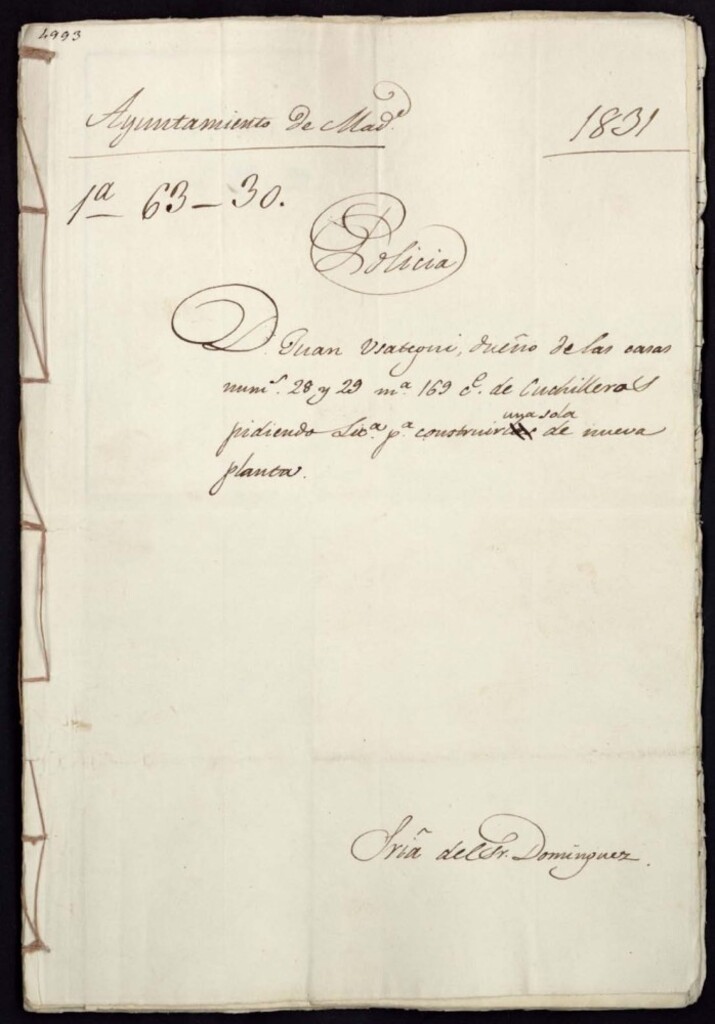 4993
Ayuntamiento de Mad.d
1831
1a 63 - 30.
Policia
D. Juan Usategui, dueño de las casas
num.s 28 y 29 m.a 169 c.e de Cuchilleros
una sola
pidiendo Lic.a p.a construir de nueva
planta.
Sria del Sr. Dominguez.